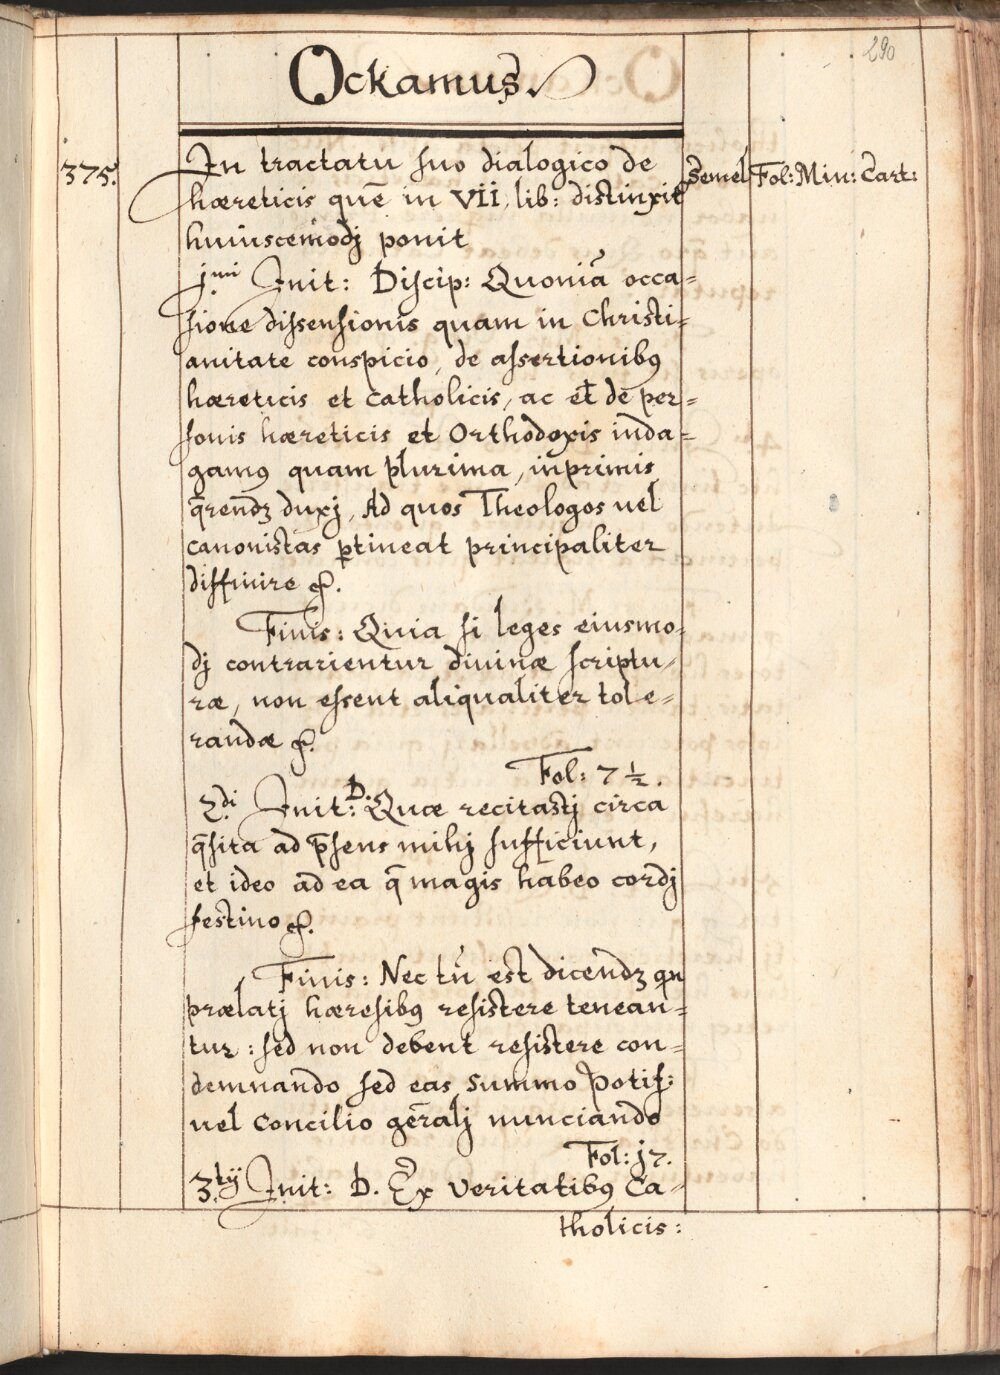 290
Ockamus.
375. In tractatu suo dialogico de Semel Fol: Min: Cart:
hæreticis quē in VII, lib: distinxit
huiuscemodj ponit
jmi Init: Discip: Quoniā occa=
sione dissensionis quam in Christi=
anitate conspicio, de assertionibꝰ
hæreticis et catholicis, ac et̄ de per=
sonis hæreticis et Orthodoxis inda=
gamꝰ quam plurima, inprimis
q̄rendꝫ duxj, Ad quos Theologos uel
canonistas ꝑtineat principaliter
diffinire &.
Finis: Quia si leges eiusmo=
dj contrarientur diuinæ scriptu=
ræ, non essent aliqualiter tole=
randæ &.
Fol: 7 ½.
2.di Init: D. Quæ recitastj circa
q̄sita ad p̄sens mihj sufficiunt,
et ideo ad ea q̄ magis habeo cordj
festino &.
Finis: Nec tn̄ est dicendꝫ qn
prælatj hæresibꝰ resistere tenean=
tur: sed non debent resistere con=
demnando sed eas summo Potif:
uel Concilio gēralj nunciando
Fol: j7.
3.tij Init: D. Ex Veritatibꝰ Ca=
tholicis: